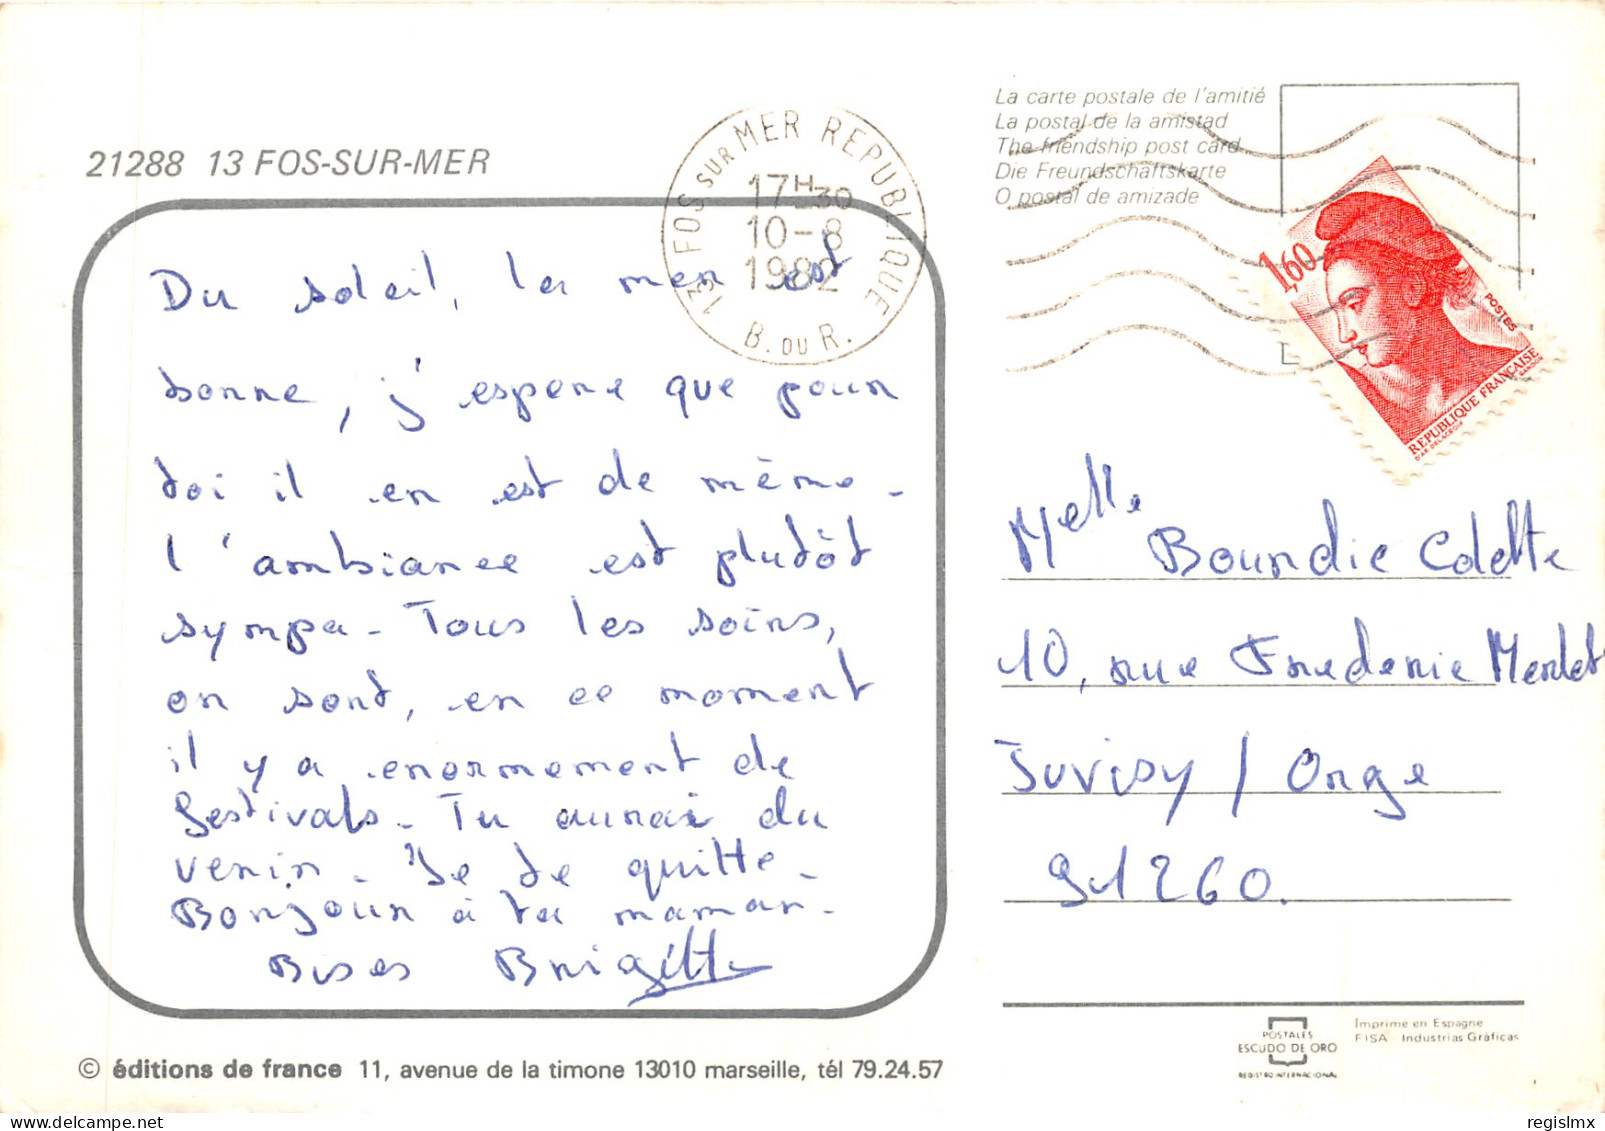 21288 13 FOS-SUR-MER
Du soleil, la mer est
bonne, j'espere que pour
toi il en est de même.
l'ambiance est plutôt
sympa - Tous les soirs,
on sort, en ce moment
il y a enormement de
festivals - Tu aurai du
venir - Je te quitte -
Bonjour à ta maman -
Bises Brigitte
© éditions de france 11, avenue de la timone 13010 marseille, tél 79.24.57
13 FOS SUR MER REPUBLIQUE
17H30
10-8
1982
B. DU R.
La carte postale de l'amitié
La postal de la amistad
The friendship post card
Die Freundschaftskarte
O postal de amizade
1,60
POSTES
REPUBLIQUE FRANÇAISE
D'AP. DELACROIX
Melle Bourdie Colette
10, rue Frederic Merlet
Juvisy / Orge
91260.
POSTALES
ESCUDO DE ORO
REGISTRO INTERNACIONAL
Imprime en Espagne
FISA - Industrias Gráficas
regislmx